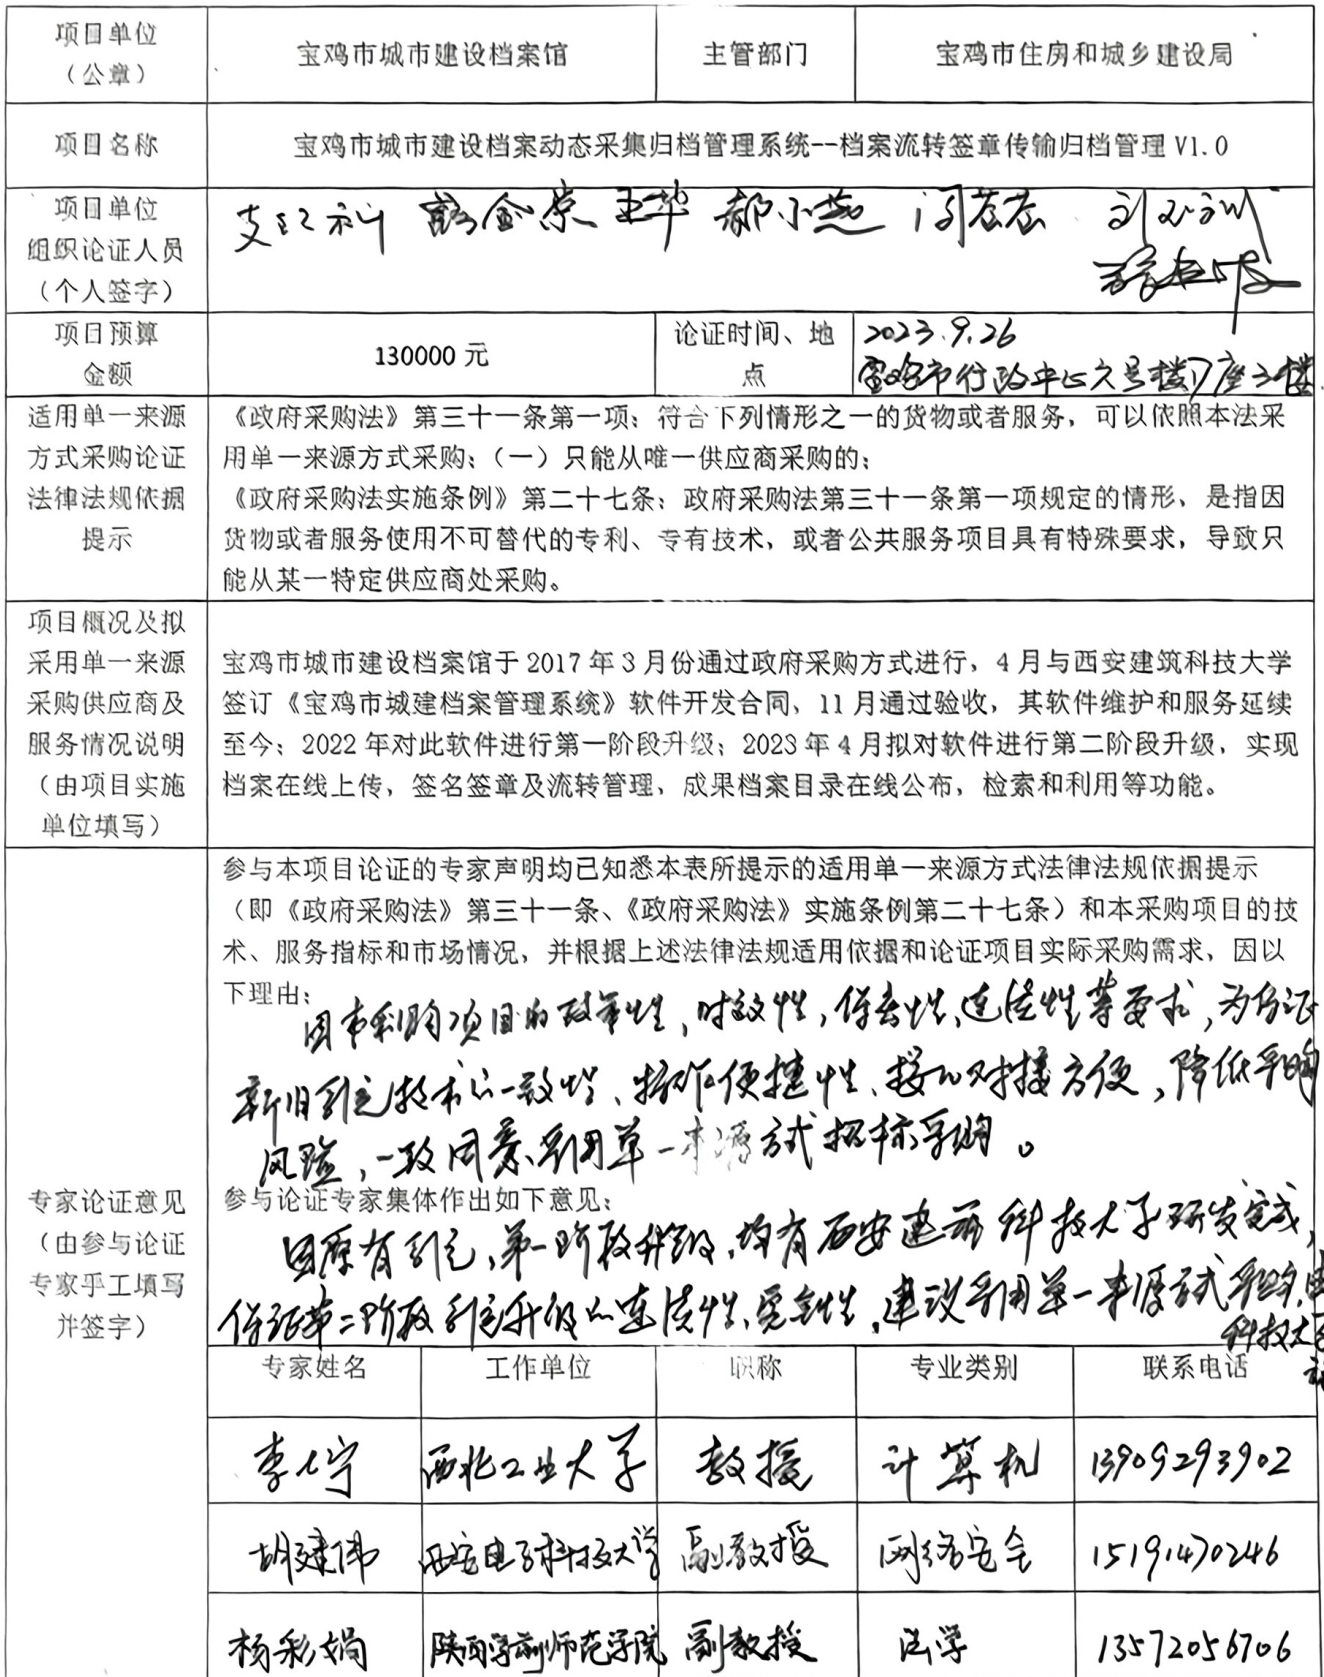 项目单位
（公章）
宝鸡市城市建设档案馆
主管部门
宝鸡市住房和城乡建设局
项目名称
宝鸡市城市建设档案动态采集归档管理系统--档案流转签章传输归档管理 V1.0
项目单位
组织论证人员
（个人签字）
王华 郝小燕 闫苍苍
项目预算
金额
130000 元
论证时间、地
点
2023.9.26
宝鸡市行政中心六号楼D座3楼
适用单一来源
方式采购论证
法律法规依据
提示
《政府采购法》第三十一条第一项：符合下列情形之一的货物或者服务，可以依照本法采
用单一来源方式采购：（一）只能从唯一供应商采购的；
《政府采购法实施条例》第二十七条：政府采购法第三十一条第一项规定的情形，是指因
货物或者服务使用不可替代的专利、专有技术，或者公共服务项目具有特殊要求，导致只
能从某一特定供应商处采购。
项目概况及拟
采用单一来源
采购供应商及
服务情况说明
（由项目实施
单位填写）
宝鸡市城市建设档案馆于 2017 年 3 月份通过政府采购方式进行，4 月与西安建筑科技大学
签订《宝鸡市城建档案管理系统》软件开发合同，11 月通过验收，其软件维护和服务延续
至今；2022 年对此软件进行第一阶段升级；2023 年 4 月拟对软件进行第二阶段升级，实现
档案在线上传，签名签章及流转管理，成果档案目录在线公布，检索和利用等功能。
专家论证意见
（由参与论证
专家手工填写
并签字）
参与本项目论证的专家声明均已知悉本表所提示的适用单一来源方式法律法规依据提示
（即《政府采购法》第三十一条、《政府采购法》实施条例第二十七条）和本采购项目的技
术、服务指标和市场情况，并根据上述法律法规适用依据和论证项目实际采购需求，因以
下理由：
因本采购项目的政策性，时效性，保密性，连续性等要求，为保证
新旧系统技术的一致性、操作便捷性、接口对接方便，降低采购
风险，一致同意采用单一来源方式招标采购。
参与论证专家集体作出如下意见：
因原有系统，第一阶段升级，均有西安建筑科技大学研发完成，
保证第二阶段系统升级的连续性、完整性，建议采用单一来源方式采购，
科技大学
专家姓名
工作单位
职称
专业类别
联系电话
李宁
西北工业大学
教授
计算机
13909293902
胡建伟
西安电子科技大学
副教授
网络安全
15191470246
杨彩娟
陕西学前师范学院
副教授
法学
13572056706